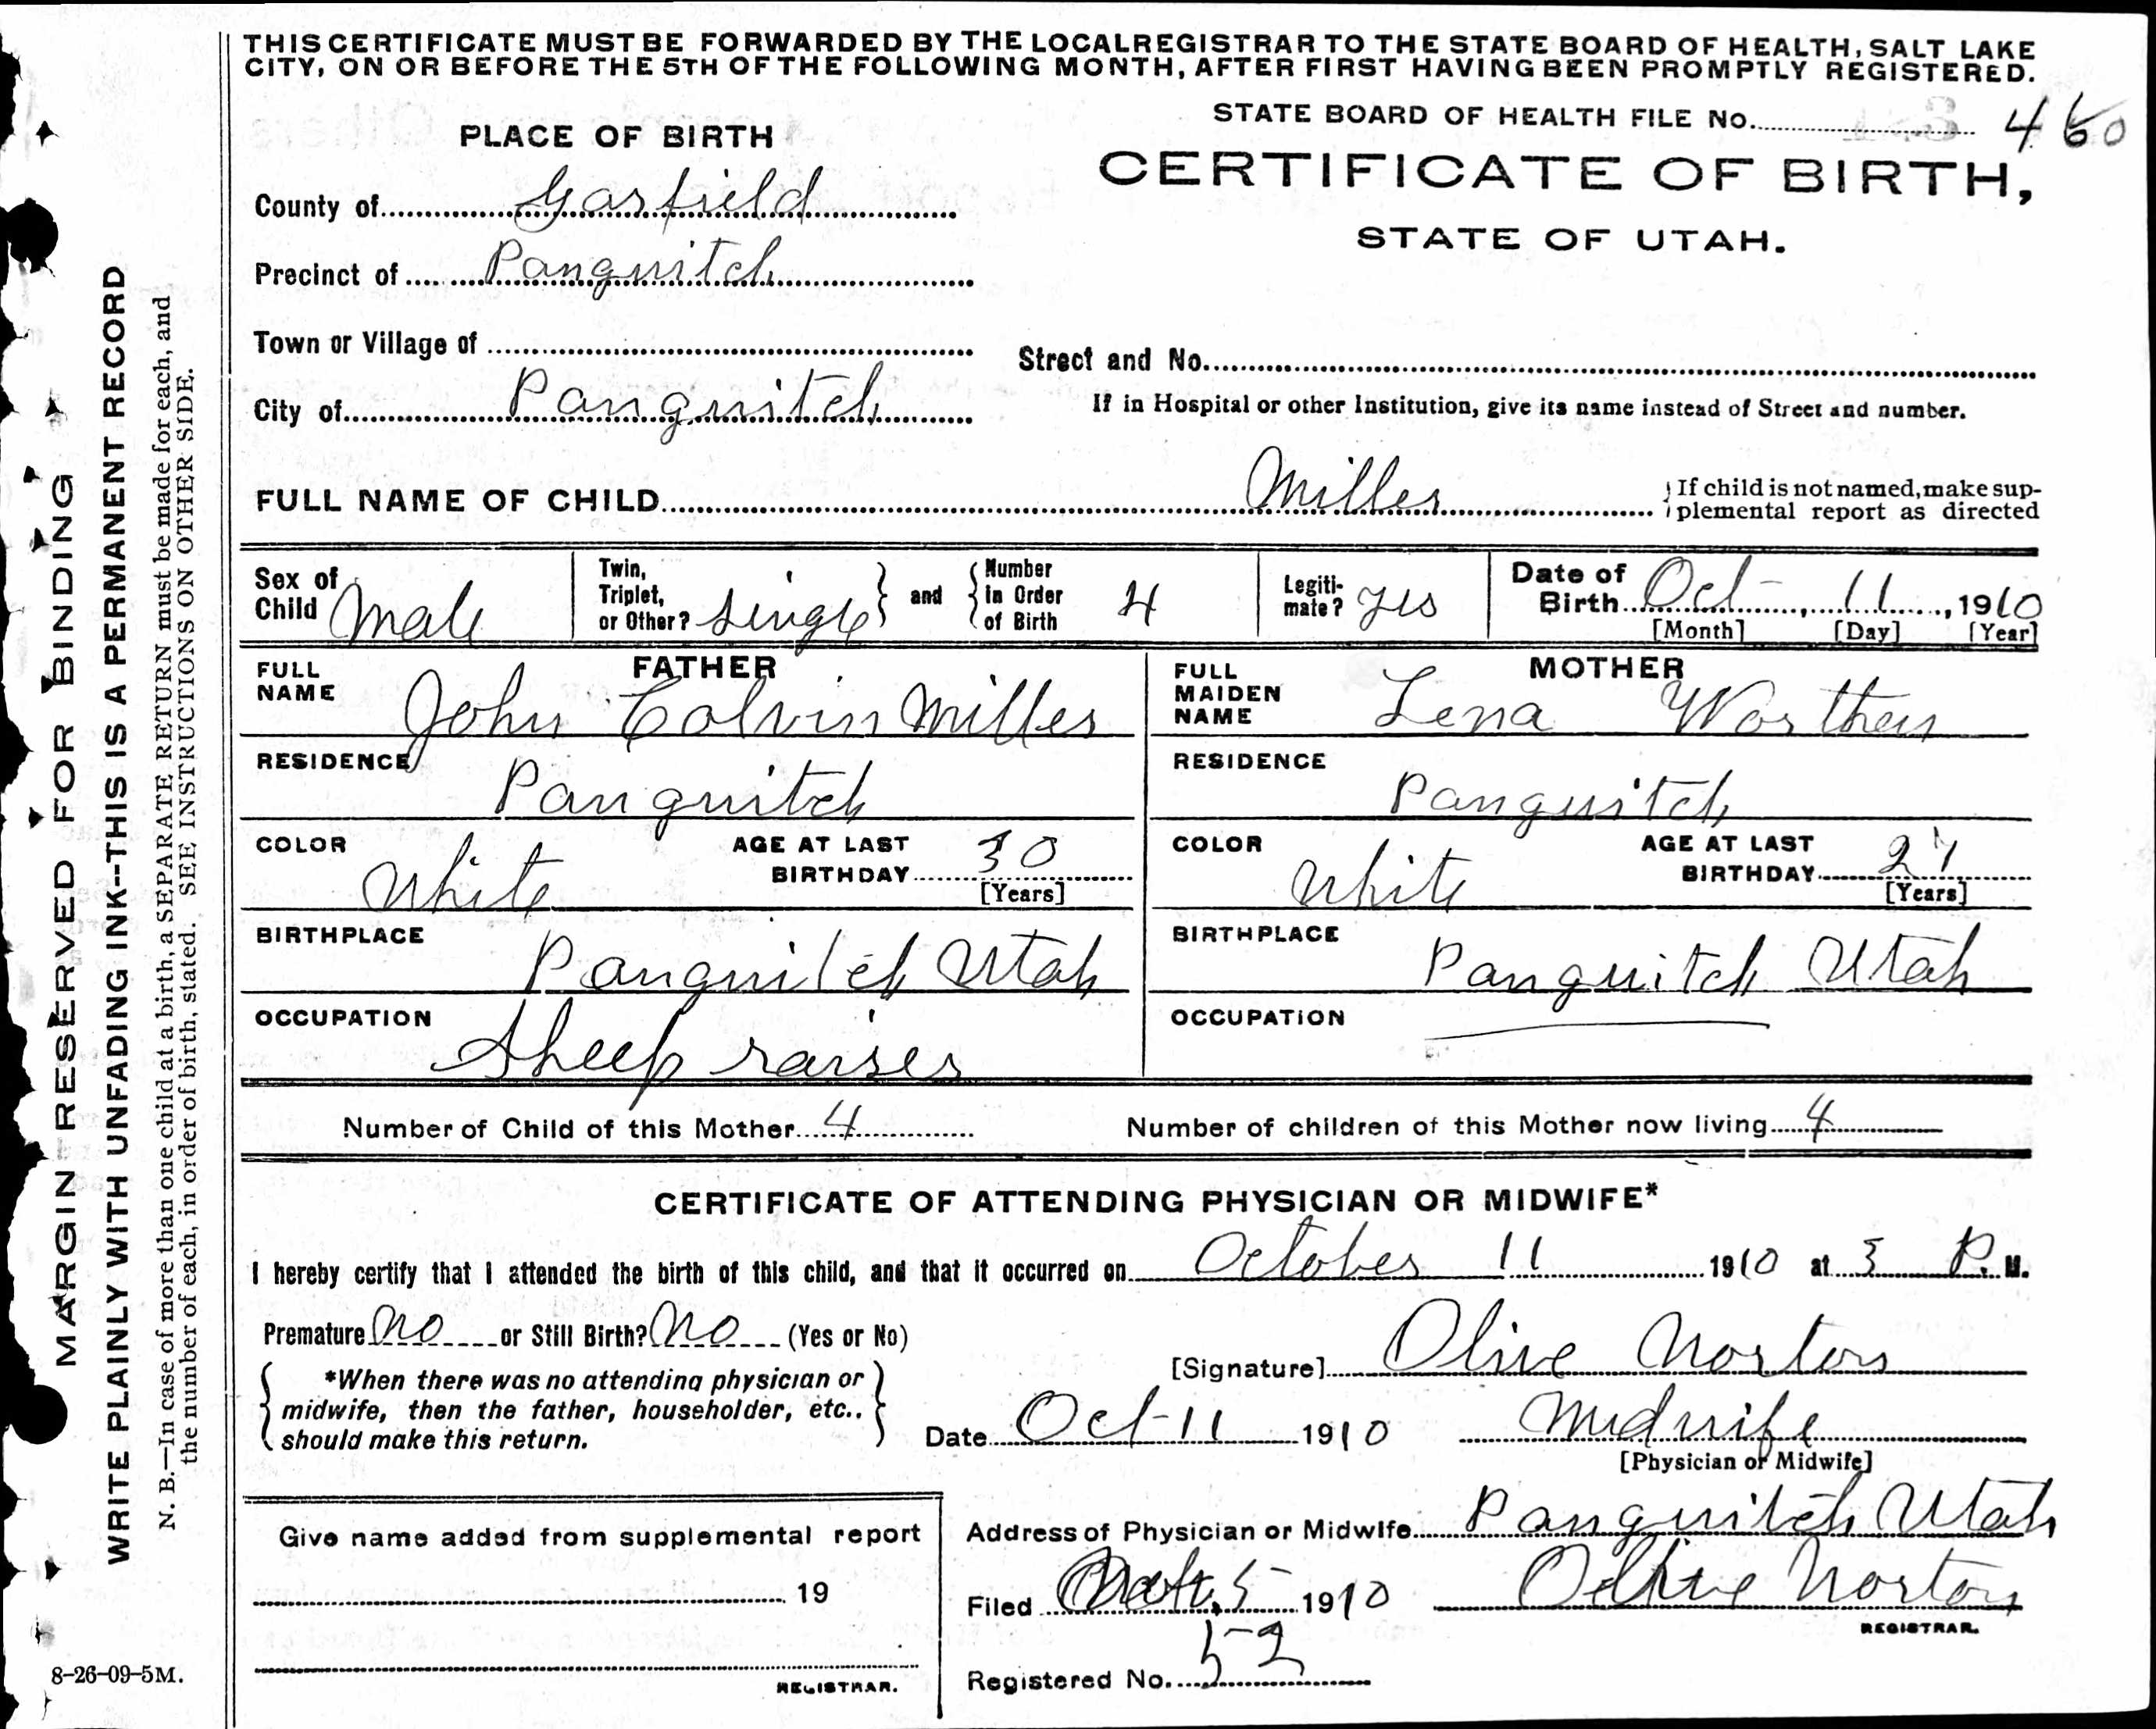 THIS CERTIFICATE MUST BE FORWARDED BY THE LOCAL REGISTRAR TO THE STATE BOARD OF HEALTH, SALT LAKE
CITY, ON OR BEFORE THE 5TH OF THE FOLLOWING MONTH, AFTER FIRST HAVING BEEN PROMPTLY REGISTERED.
STATE BOARD OF HEALTH FILE No. 460
PLACE OF BIRTH
CERTIFICATE OF BIRTH,
STATE OF UTAH.
County of Garfield
Precinct of Panguitch
Town or Village of
Street and No.
City of Panguitch
If in Hospital or other Institution, give its name instead of Street and number.
FULL NAME OF CHILD Miller
If child is not named, make sup-
plemental report as directed
Sex of Child Male
Twin, Triplet, or Other? single and Number in Order of Birth 4
Legiti-mate? yes
Date of Birth Oct - 11, 1910
[Month] [Day] [Year]
FATHER
FULL NAME John Colvin Miller
MOTHER
FULL MAIDEN NAME Lena Worthen
RESIDENCE Panguitch
RESIDENCE Panguitch
COLOR White AGE AT LAST BIRTHDAY 30 [Years]
COLOR White AGE AT LAST BIRTHDAY 27 [Years]
BIRTHPLACE Panguitch Utah
BIRTHPLACE Panguitch Utah
OCCUPATION Sheep raiser
OCCUPATION
Number of Child of this Mother 4 Number of children of this Mother now living 4
CERTIFICATE OF ATTENDING PHYSICIAN OR MIDWIFE*
I hereby certify that I attended the birth of this child, and that it occurred on October 11 1910 at P. M.
Premature No or Still Birth? No (Yes or No)
[Signature] Olive Norton
*When there was no attending physician or
midwife, then the father, householder, etc..
should make this return.
Date Oct - 11 1910 Midwife
[Physician or Midwife]
Give name added from supplemental report
Address of Physician or Midwife Panguitch Utah
19
Filed 5 - 1910 Olive Norton
REGISTRAR.
Registered No. 52
REGISTRAR.
8-26-09-5M.
MARGIN RESERVED FOR BINDING
WRITE PLAINLY WITH UNFADING INK--THIS IS A PERMANENT RECORD
N. B.—In case of more than one child at a birth, a SEPARATE RETURN must be made for each, and
the number of each, in order of birth, stated. SEE INSTRUCTIONS ON OTHER SIDE.